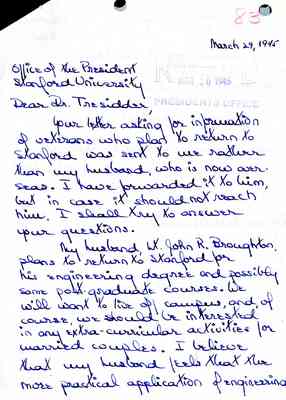 83
March 29, 1945
Office of the President
Stanford University
1945
PRESIDENTS OFFICE
Dear Dr. Tresidder,
Your letter asking for information
of veterans who plan to return to
Stanford was sent to me rather
than my husband, who is now over-
seas. I have forwarded it to him,
but in case it should not reach
him, I shall try to answer
your questions.
My husband, Lt. John R. Broughton,
plans to return to Stanford for
his engineering degree and possibly
some post-graduate courses. We
will want to live off campus, and, of
course, we should be interested
in any extra-curricular activities for
married couples. I believe
that my husband feels that the
more practical application of engineering